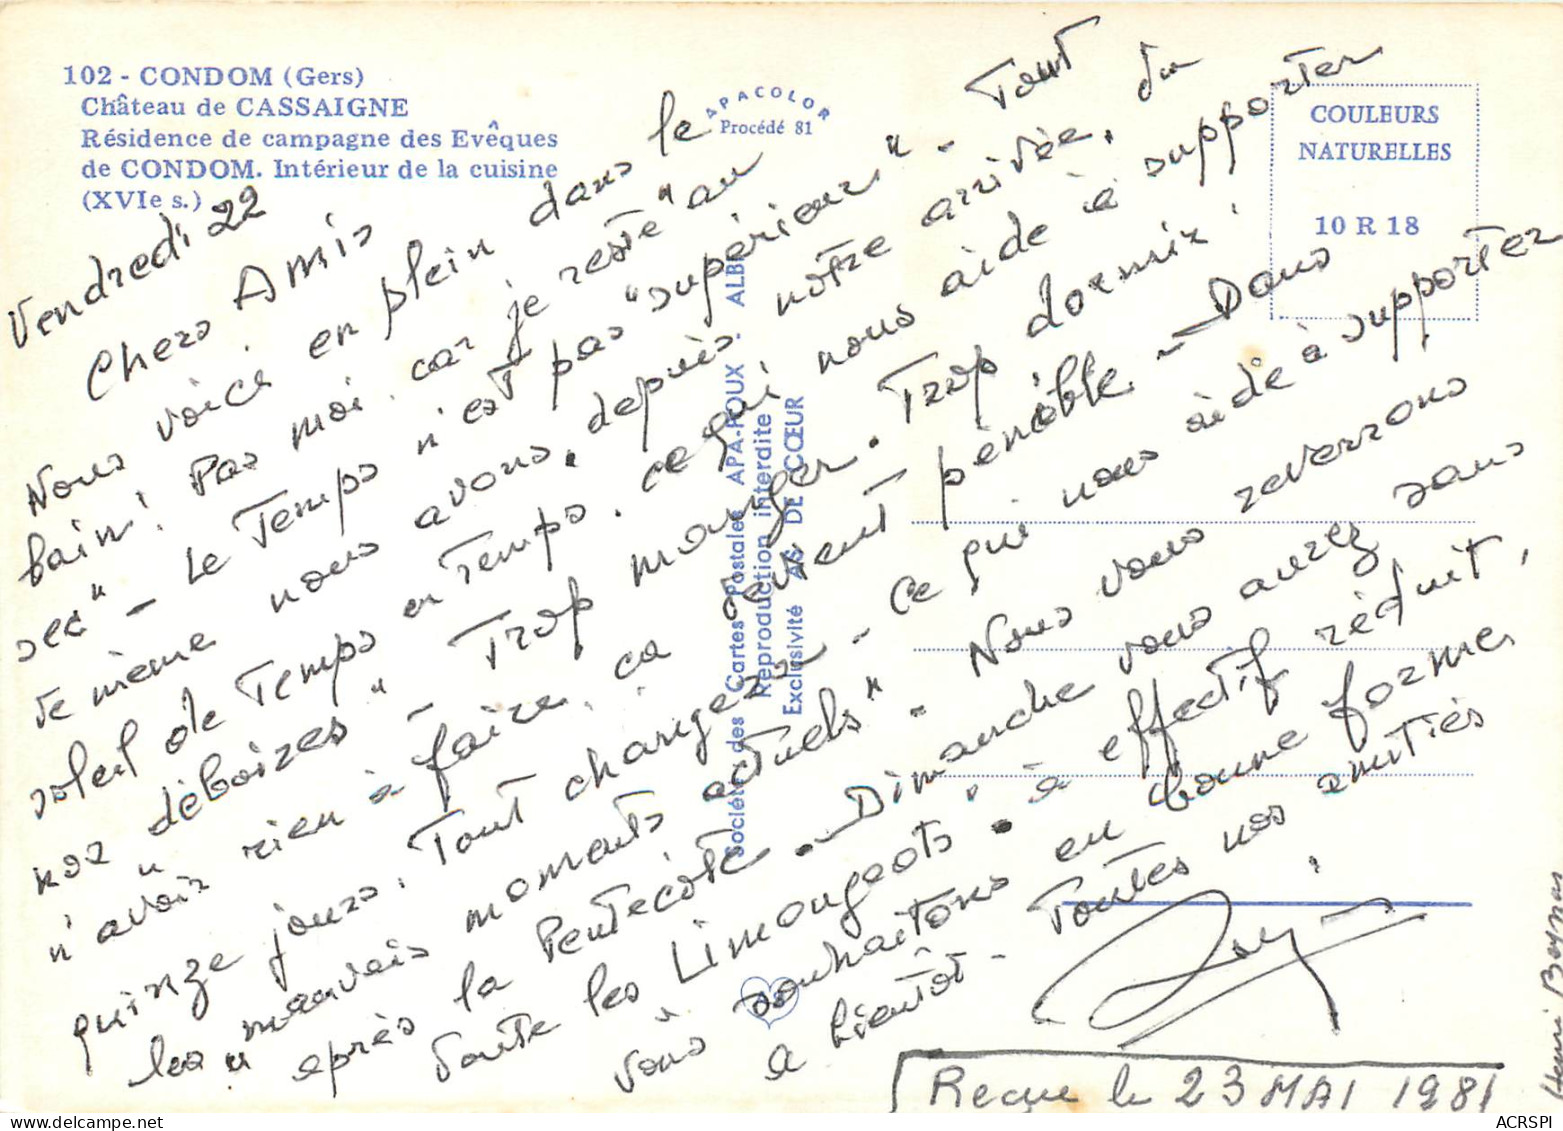 102 - CONDOM (Gers)
Château de CASSAIGNE
Résidence de campagne des Evêques
de CONDOM. Intérieur de la cuisine
(XVIe s.)
APACOLOR
Procédé 81
COULEURS
NATURELLES
10 R 18
Société des Cartes Postales APA-POUX - ALBI
Reproduction interdite
Exclusivité AS DE CŒUR
As
Vendredi 22
Chers Amis
Nous voici en plein dans le
bain! Pas moi, car je reste "au
sec" - Le Temps n'est pas "supérieur" - Tout
de même nous avons, depuis notre arrivée, du
soleil de Temps en Temps. ce qui nous aide à supporter
nos "déboires" Trop manger. Trop dormir!
n'avoir rien à faire, ça devient pénible - Dans
quinze jours, Tout changera - Ce qui nous aide à supporter
les "mauvais moments actuels" - Nous vous reverrons
après la Pentecôte - Dimanche vous aurez sans
doute les Limougeots, à effectif réduit,
vous souhaitons en bonne forme,
a bientôt - Toutes nos amitiés
Reçue le 23 MAI 1981
Henri
ACRSPI